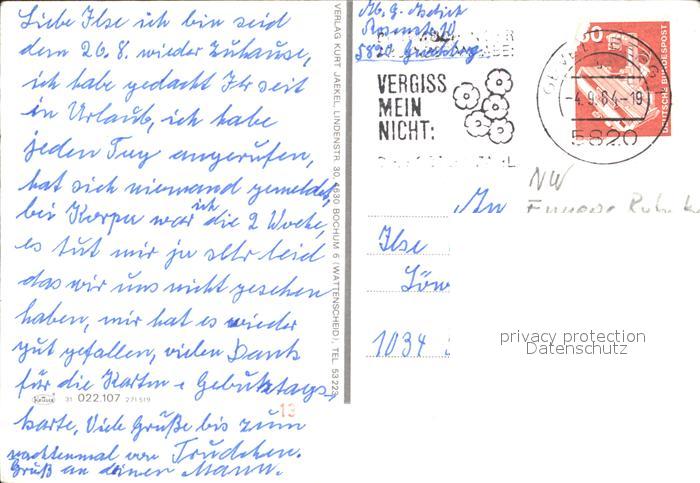 Liebe Ilse ich bin seid
dem 26.8. wieder zuhause,
ich habe gedacht Ihr seit
in Urlaub, ich habe
jeden Tag angerufen,
hat sich niemand gemeldet,
bei Korpu war ich die 2 Woche,
es tut mir ja sehr leid
das wir uns nicht gesehen
haben, mir hat es wieder
gut gefallen, vielen Dank
für die Karten u Gebuktags,
karte. Viele Grüße bis zum
nächstenmal von Trudchen.
Gruß an deinen Mann.
31 022.107 271519
13
VERLAG KURT JAEKEL, LINDENSTR. 30, 4630 BOCHUM 6 (WATTENSCHEID), TEL. 53223
Ab. G.
5820 Gevelsberg
VERGISS
MEIN
NICHT:
-4.9.84-19
5820
60
DEUTSCHE BUNDESPOST
NW
An
Ilse
Löw
1034
privacy protection
Datenschutz